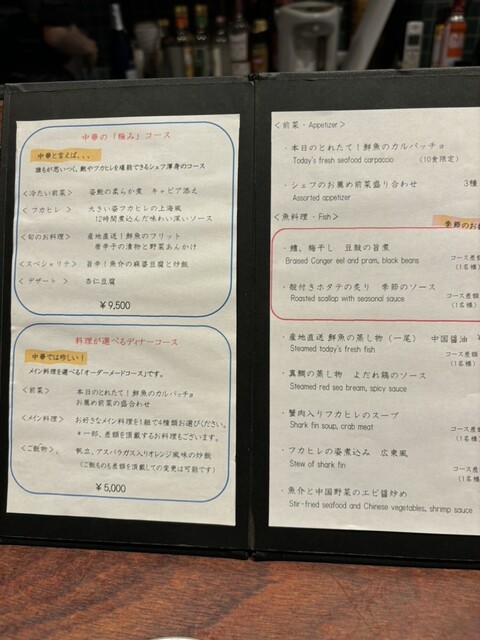 中華の「極み」コース
中華と言えば、、、
誰もが思いつく、鮑やフカヒレを堪能できるシェフ渾身のコース
<冷たい前菜> 姿鮑の柔らか煮 キャビア添え
<フカヒレ> 大きい姿フカヒレの上海風
12時間煮込んだ味わい深いソース
<旬のお料理> 産地直送!鮮魚のフリット
唐辛子の漬物と野菜あんかけ
<スペシャリテ> 旨辛!魚介の麻婆豆腐と炒飯
<デザート> 杏仁豆腐
¥9,500
料理が選べるディナーコース
中華では珍しい!
メイン料理を選べる「オーダーメードコース」です。
<前菜> 本日のとれたて!鮮魚のカルパッチョ
お薦め前菜の盛り合わせ
<メイン料理> お好きなメイン料理を1組で4種類お選びください。
*一部、差額を頂戴するお料理もございます。
<ご飯物> 帆立、アスパラガス入りオレンジ風味の炒飯
(ご飯ものも差額を頂戴しての変更は可能です)
¥5,000
<前菜・Appetizer>
・本日のとれたて!鮮魚のカルパッチョ
Today's fresh seafood carpaccio (10食限定)
・シェフのお薦め前菜盛り合わせ 3種
Assorted appetizer
<魚料理・Fish>
季節のお
・鱧、梅干し 豆鼓の旨煮 コース差額
Braised Conger eel and pram, black beans (1名様)
・殻付きホタテの炙り 季節のソース コース差額
Roasted scallop with seasonal sauce (1名様)
・産地直送 鮮魚の蒸し物(一尾) 中国醤油
Steamed today's fresh fish コース差額
(1名様)
・真鯛の蒸し物 よだれ鶏のソース
Steamed red sea bream, spicy sauce
・蟹肉入りフカヒレのスープ
Shark fin soup, crab meat コース差
(1名様)
・フカヒレの姿煮込み 広東風
Stew of shark fin コース差
(1名様)
・魚介と中国野菜のエビ醤炒め
Stir-fried seafood and Chinese vegetables, shrimp sauce